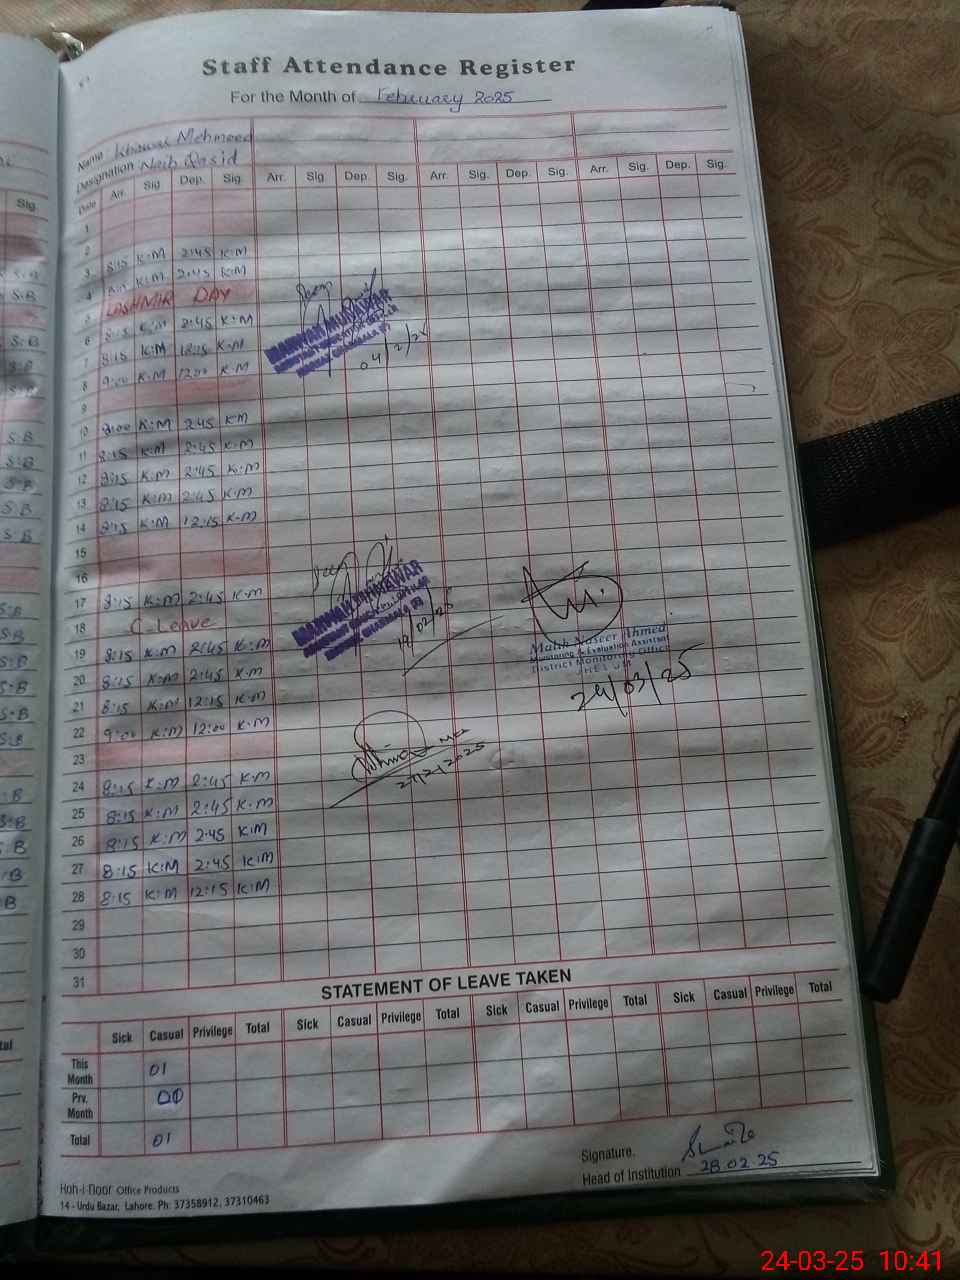 Staff Attendance Register
For the Month of February 2025
Name Mehmood
Designation Naib Qasid
Date Arr. Sig Dep. Sig. Arr. Sig Dep. Sig. Arr. Sig. Dep. Sig. Arr. Sig. Dep. Sig.
1
2
3 8:15 K.M 2:45 K.M
4 K.M 2:45 K.M
5 KASHMIR DAY
6 8:15 K.M 2:45 K.M
7 8:15 K.M 12:15 K.M
8 9:00 K.M 12:00 K.M
04/2/25
9
10 8:00 K.M 2:45 K.M
11 8:15 K.M 2:45 K.M
12 8:15 K.M 2:45 K.M
13 8:15 K.M 2:45 K.M
14 8:15 K.M 12:15 K.M
15
16
17 8:15 K.M 2:45 K.M
18 C-Leave
19 8:15 K.M 2:45 K.M
20 8:15 K.M 2:45 K.M
21 8:15 K.M 12:15 K.M
22 9:00 K.M 12:00 K.M
23
24 8:15 K.M 2:45 K.M
25 8:15 K.M 2:45 K.M
26 8:15 K.M 2:45 K.M
27 8:15 K.M 2:45 K.M
28 8:15 K.M 12:15 K.M
29
30
31
19/02/25
Malik Naseer Ahmed
Monitoring & Evaluation Assistant
District Monitoring Office
24/03/25
STATEMENT OF LEAVE TAKEN
Sick Casual Privilege Total Sick Casual Privilege Total Sick Casual Privilege Total Sick Casual Privilege Total
This Month 01
Prv. Month 00
Total 01
Signature.
Head of Institution 28.02.25
Koh-i-Noor Office Products
14 - Urdu Bazar, Lahore. Ph: 37358912, 37310463
24-03-25 10:41